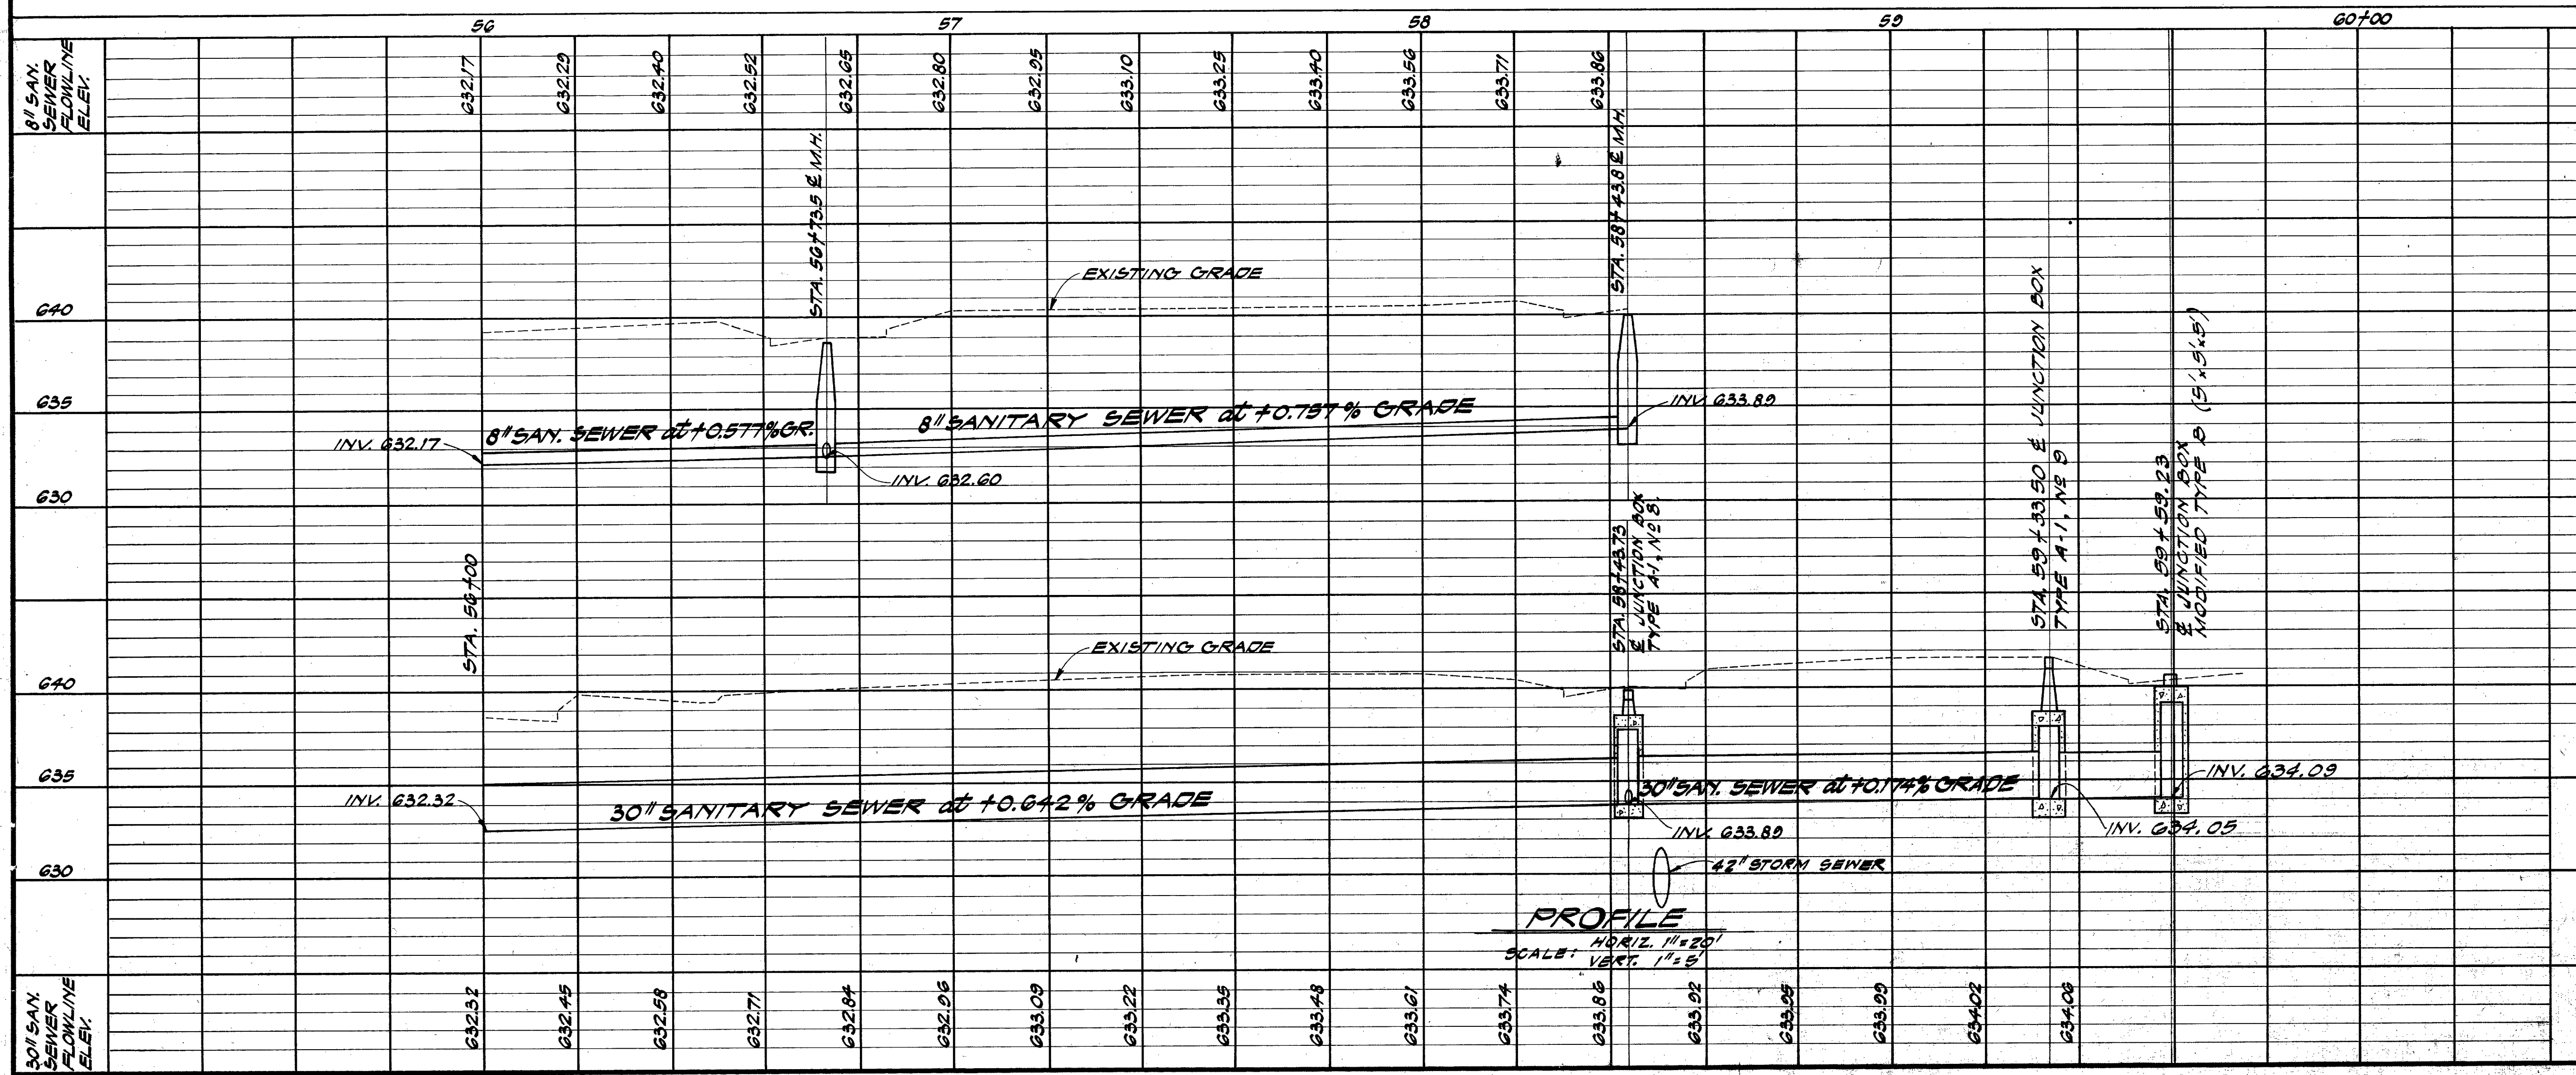 56 57 58 59 60+00
8" SAN.
SEWER
FLOWLINE
ELEV.
632.17 632.29 632.40 632.52 632.65 632.80 632.95 633.10 633.25 633.40 633.56 633.71 633.86
STA. 56+73.5 ℄ M.H.
STA. 58+43.8 ℄ M.H.
EXISTING GRADE
640
635
630
INV. 632.17
8" SAN. SEWER at +0.577% GR.
8" SANITARY SEWER at +0.757% GRADE
INV. 633.89
INV. 632.60
STA. 56+00
STA. 58+43.73
℄ JUNCTION BOX
TYPE A-1, Nº 8.
STA. 59+33.50 ℄ JUNCTION BOX
TYPE A-1, Nº 9
STA. 59+59.23
℄ JUNCTION BOX
MODIFIED TYPE B (5'x5'x5')
EXISTING GRADE
640
635
630
INV. 632.32
30" SANITARY SEWER at +0.642% GRADE
30" SAN. SEWER at +0.174% GRADE
INV. 634.09
INV. 633.89
INV. 634.05
42" STORM SEWER
PROFILE
SCALE: HORIZ. 1"=20'
VERT. 1"=5'
30" SAN.
SEWER
FLOWLINE
ELEV.
632.32 632.45 632.58 632.71 632.84 632.96 633.09 633.22 633.35 633.48 633.61 633.74 633.86 633.92 633.95 633.99 634.02 634.06